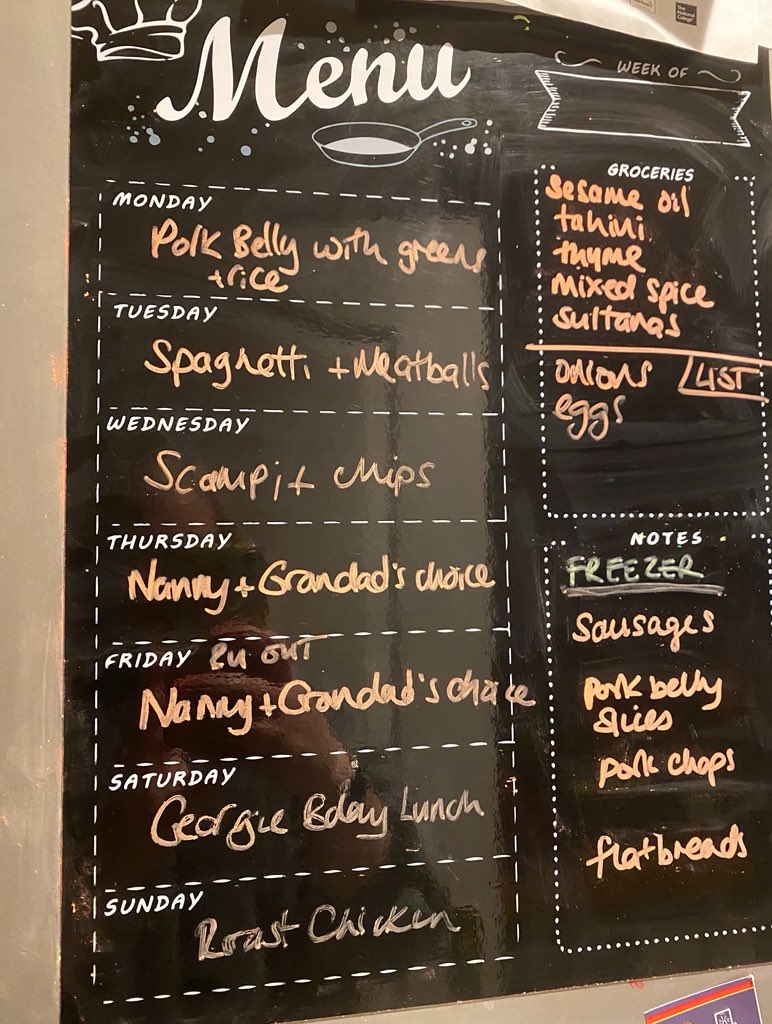 Menu
WEEK OF
MONDAY
Pork Belly with greens
+ rice
TUESDAY
Spaghetti + Meatballs
WEDNESDAY
Scampi + chips
THURSDAY
Nanny + Grandad's choice
FRIDAY Ru OUT
Nanny + Grandad's choice
SATURDAY
Georgie Bday Lunch
SUNDAY
Roast Chicken
GROCERIES
Sesame oil
tahini
thyme
Mixed spice
Sultanas
onions LIST
eggs
NOTES
FREEZER
Sausages
Pork belly
slices
Pork chops
flatbreads